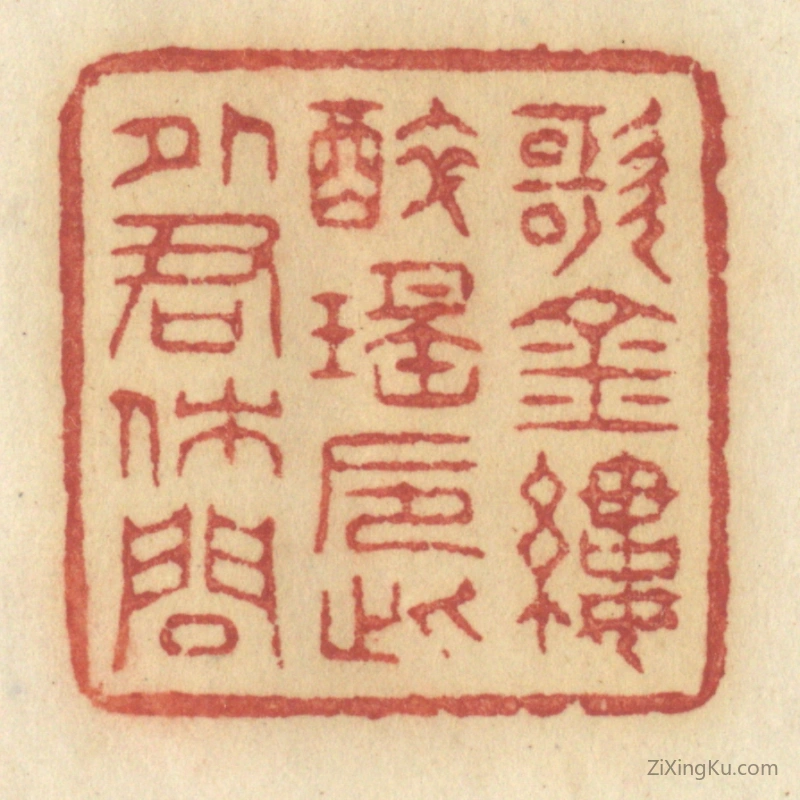 歌金縷
醉瑤卮此
外君休問
ZiXingKu.com